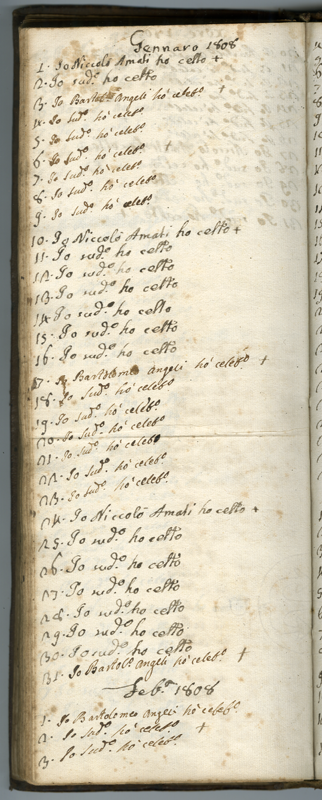 Gennaro 1808
1. Io Niccolò Amati ho celto +
2. Io sud.o ho celto
3. Io Bartol.o Angeli hò celeb.o +
4. Io sud.o hò celeb.o
5. Io sud.o hò celeb.o
6. Io sud.o hò celeb.o +
7. Io sud.o hò celeb.o
8. Io sud.o hò celeb.o
9. Io sud.o hò celeb.o
10. Io Niccolò Amati ho celto +
11. Io sud.o ho celto
12. Io sud.o ho celto
13. Io sud.o ho celto
14. Io sud.o ho celto
15. Io sud.o ho celto
16. Io sud.o ho celto
17. Io Bartolomeo Angeli hò celeb.o +
18. Io sud.o hò celeb.o
19. Io sud.o hò celeb.o
20. Io sud.o hò celeb.o
21. Io sud.o hò celeb.o
22. Io sud.o hò celeb.o
23. Io sud.o hò celeb.o
24. Io Niccolò Amati ho celto +
25. Io sud.o ho celto
26. Io sud.o ho celto
27. Io sud.o ho celto
28. Io sud.o ho celto
29. Io sud.o ho celto
30. Io sud.o ho celto
31. Io Bartol.o Angeli hò celeb.o +
Feb.o 1808
1. Io Bartolomeo Angeli hò celeb.o
2. Io sud.o hò celeb.o +
3. Io sud.o hò celeb.o